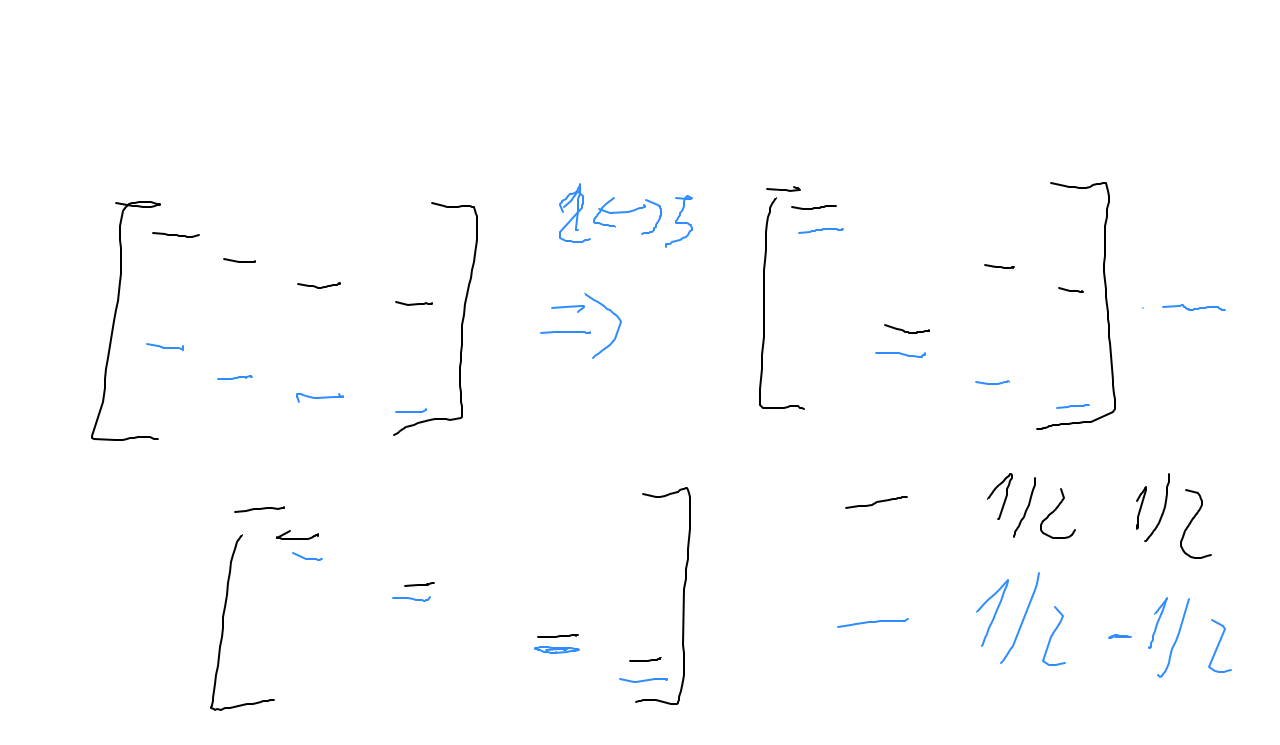 2 ↔ 3
⇒
— 1/2 1/2
— 1/2 -1/2